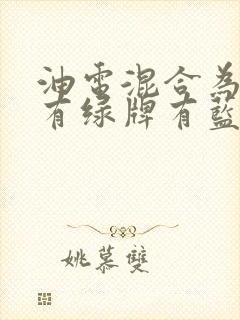 油電混合為
有绿牌有藍
姚慕雙